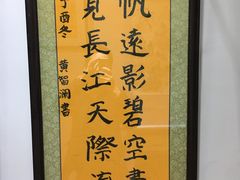 帆遠影碧空盡
見長江天際流
丁酉冬 黃智瀾書